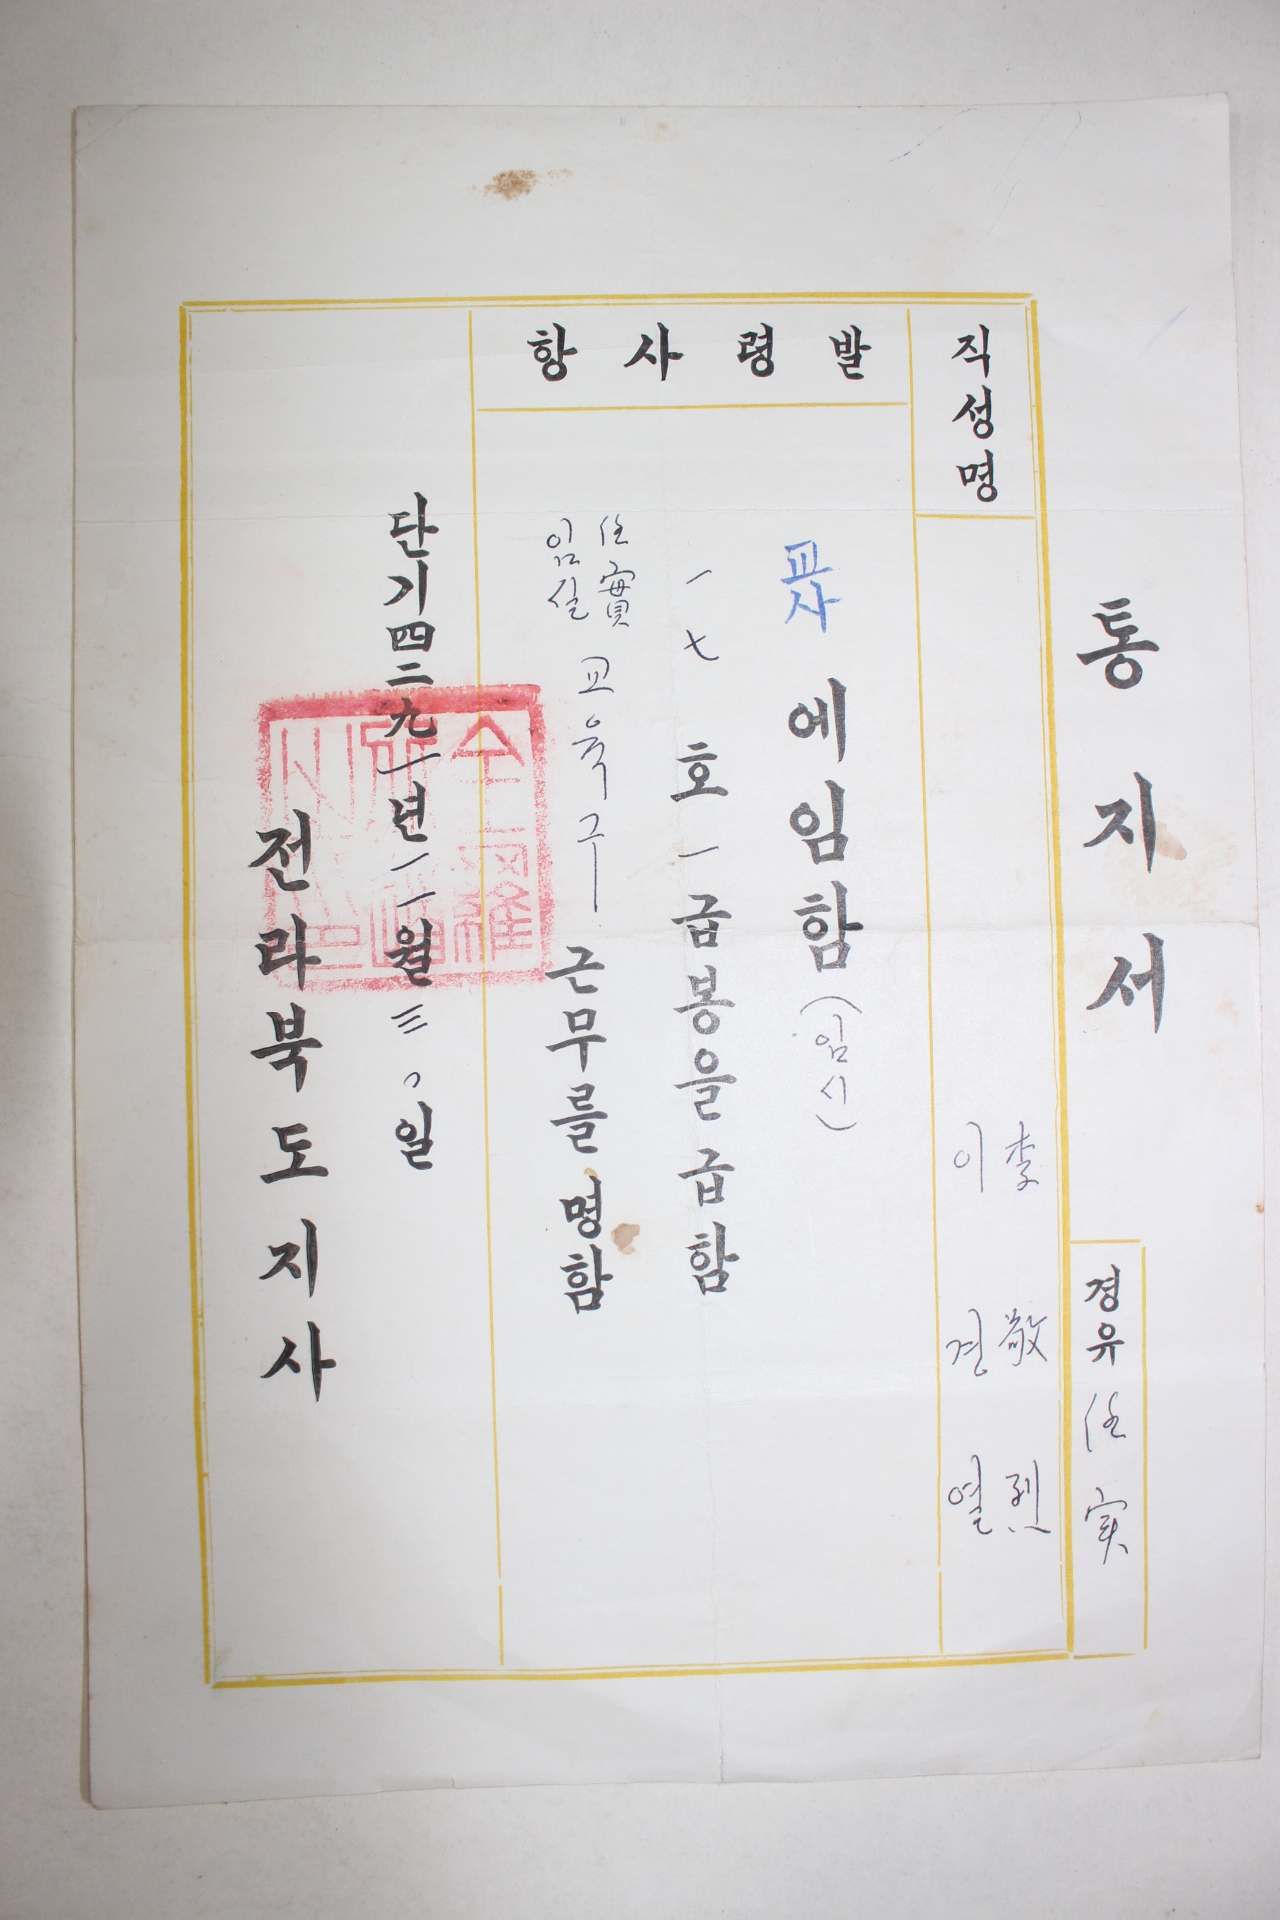 통지서
경유 任実
직성명
李敬烈
이경열
발령사항
교사에임함(임시)
一七호一급봉을급함
任實
임실교육구근무를명함
단기四二九一년一二월三〇일
전라북도지사